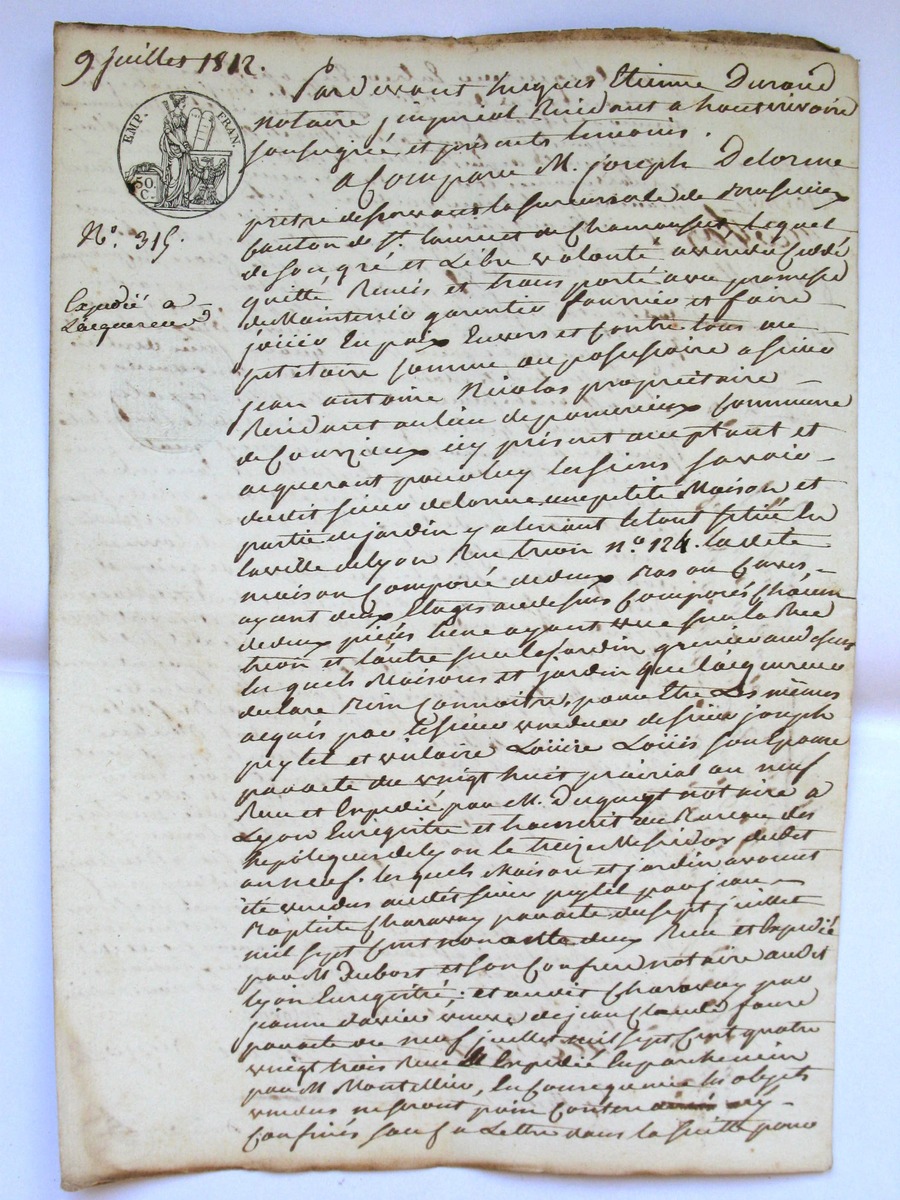 9 juillet 1812.
EMP. FRAN.
50 C.
N.° 315.
Expédié a
Lacquereur
Pardevant Jacques Etienne Durand
notaire imperial Residant a hauterivoire
soussigné et presents temoins.
a Comparu M. joseph Delorme
pretre desservant la succursale de
Canton de St. laurent de Chamousset, lequel
de son gré et Libre volonté a vendu Cédé
quitté Remis et transporté avec promesse
de Maintenir garentir fournir et faire
jouir En paix Envers et Contre tous au
petitoire comme au possessoire a sieur
jean antoine Nicolas proprietaire
Residant au lieu de pomerieux Commune
de Courzieux icy présent acceptant et
acquerant pour luy les siens savoir
dudit sieur delorme une petite Maison et
partie de jardin y attenant le tout situé En
la ville de lyon Rue trion n.° 124. la dete
maison Composée de deux Bas ou Caves
ayant deux Etages au dessus Composés Chacun
de deux pièces l'une ayant vue sur la Rue
trion et l'autre sur le jardin grenier au dessus
lesquels Maisons et jardin que l'acquereur
declare Bien Connoitre, pour Etre Les mêmes
acquis par le sieur vendeur de sieur joseph
peytel et Louise Louis son Epouse
par acte du vingt huit prairial an neuf
Reçu et Expédié par M. Dugueyt notaire a
Lyon Enregistré et transcrit au Bureau des
hepoteques de lyon le treize Messidor dudit
an neuf. lesquels Maison et jardin avoient
été vendus audit sieur peytel par jean
Baptiste Charavay par acte du sept juillet
mil sept Cent nonante deux Reçu et Expédié
par M Dubost et son Confrere notaire audit
lyon Enregistré; et audit Charavay par
jeanne veuve de jean Claude faure
par acte du neuf juillet mil sept Cent quatre
vingt trois Reçu et Expédié En parchemin
par M Montellier, En Consequence les objets
vendus ne seront point
Confinés sauf a Lettre dans la suitte pour